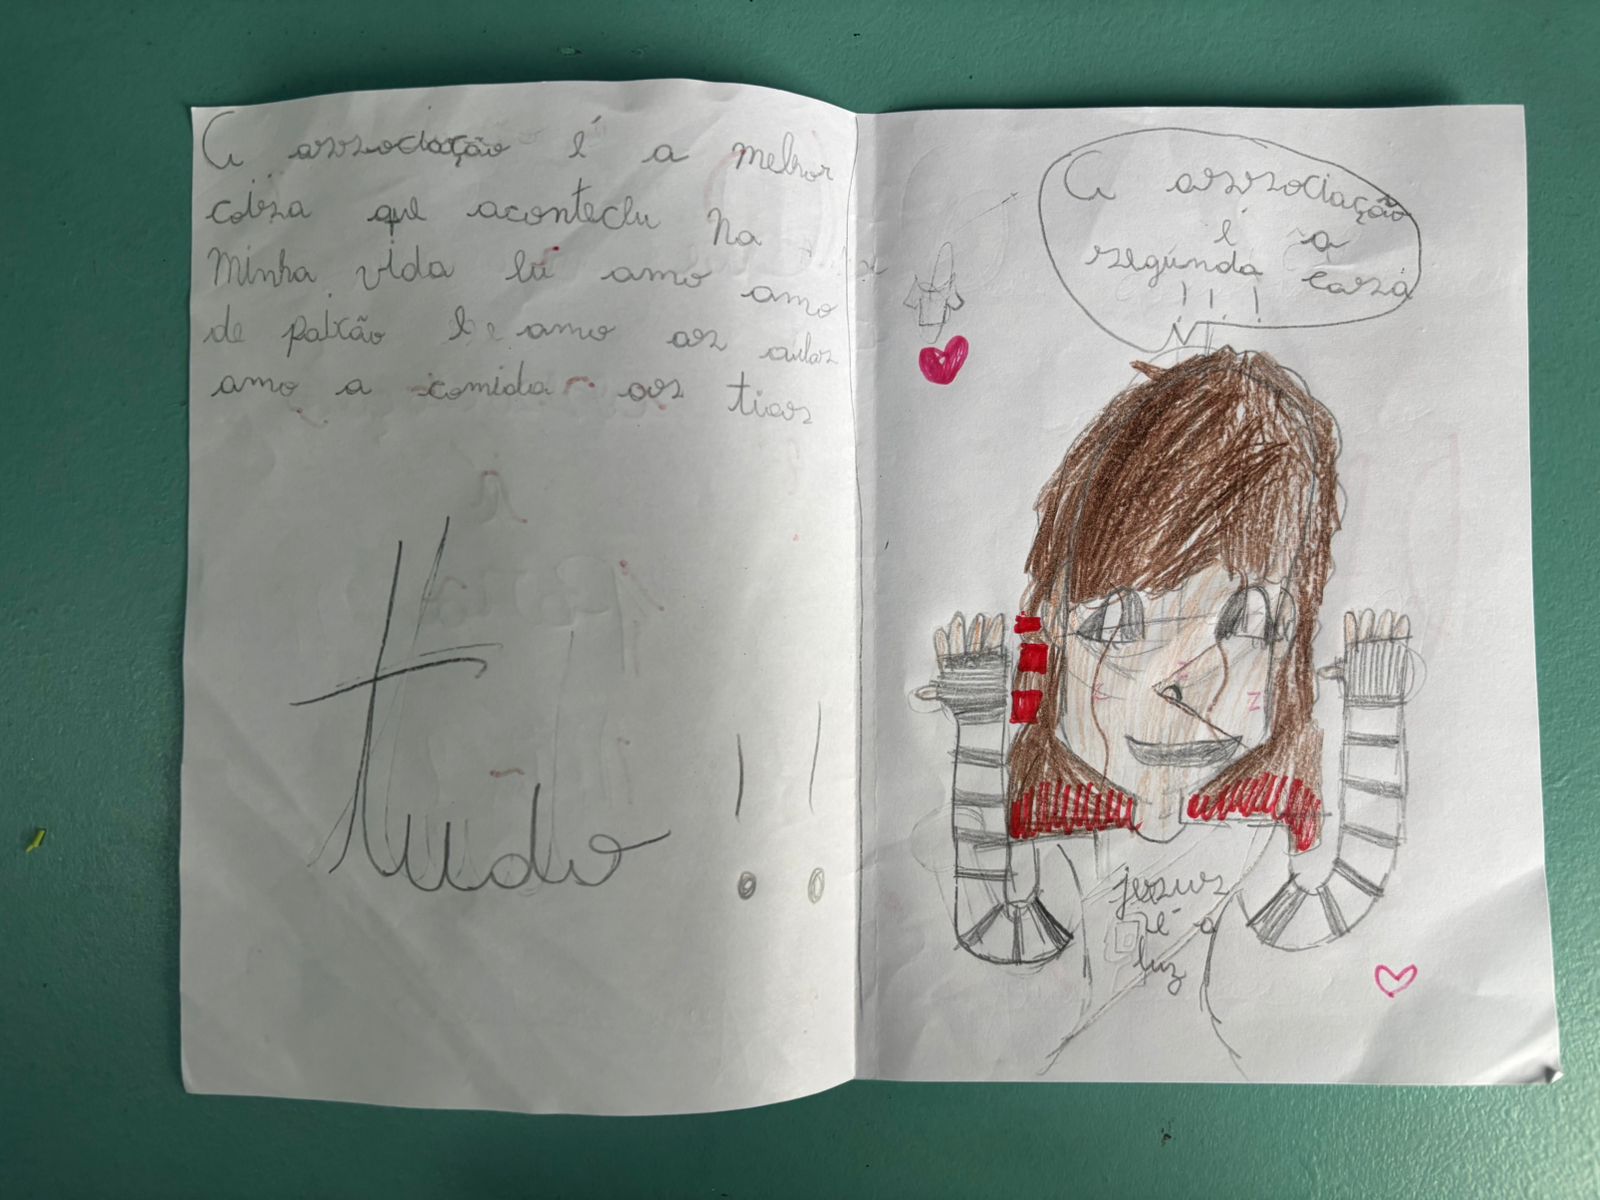 A associação é a melhor
coisa que aconteceu na
minha vida eu amo amo
de paixão e amo as aulas
amo a comida as tias
tudo!!
A associação
é a
segunda casa
!!!
jesus
é a
luz